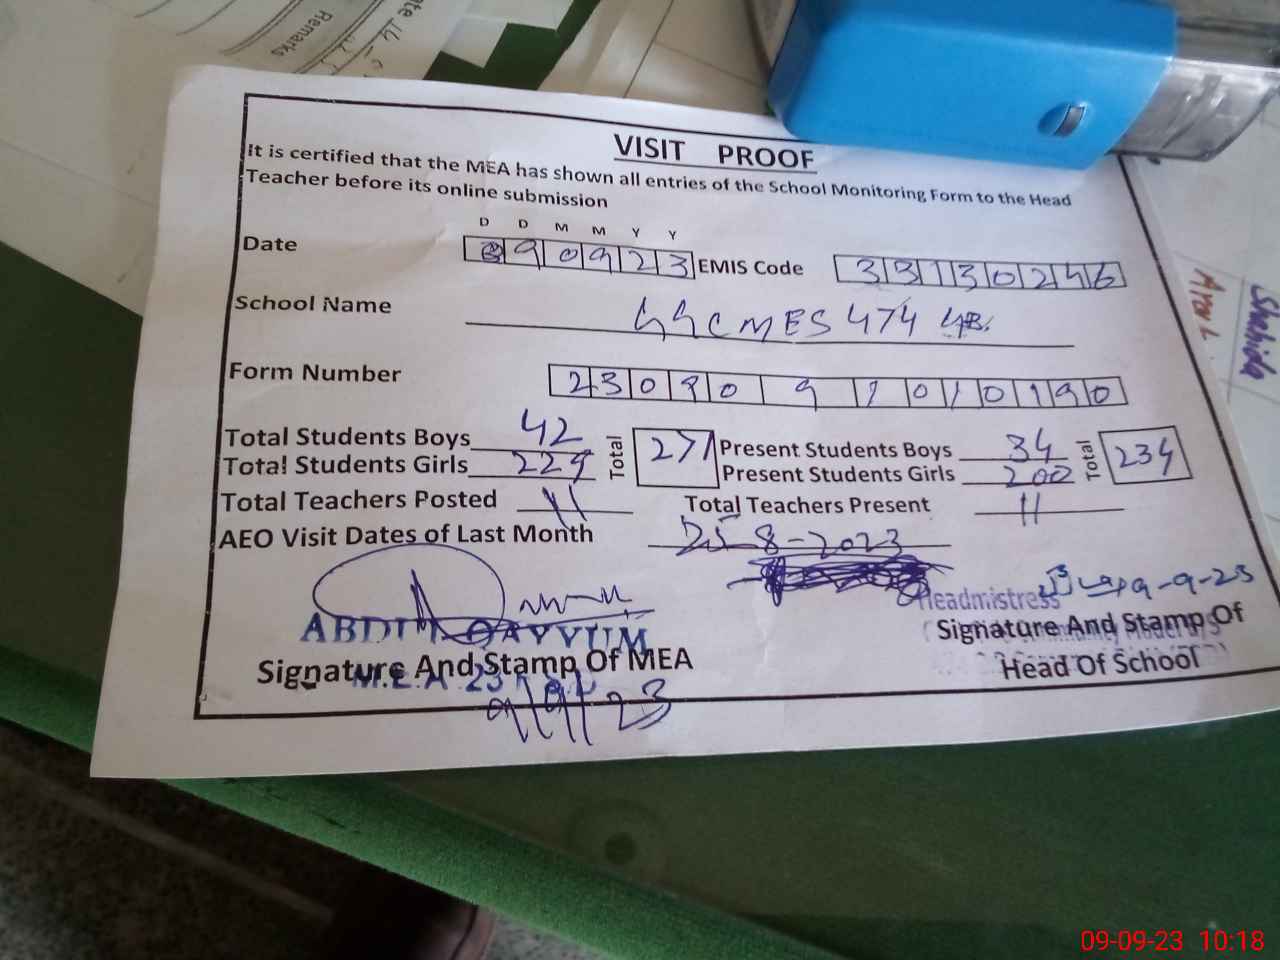 Remarks
VISIT PROOF
It is certified that the MEA has shown all entries of the School Monitoring Form to the Head
Teacher before its online submission
D D M M Y Y
Date 090923 EMIS Code 33130246
School Name GGCMES 474 GB.
Form Number 23090 9 1010190
Total Students Boys 42 Total 271 Present Students Boys 34 Total 234
Total Students Girls 229 Present Students Girls 200
Total Teachers Posted 11 Total Teachers Present 11
AEO Visit Dates of Last Month 25-8-2023
9-9-23
ABDUL QAYYUM Headmistress
Signature And Stamp Of MEA Signature And Stamp Of
M.E.A 23 Head Of School
9/9/23
Shahida
09-09-23 10:18